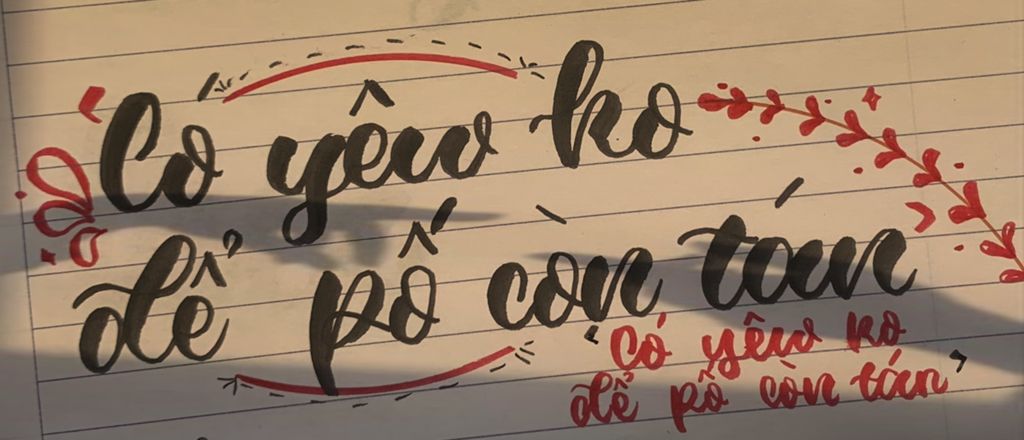 Có yêw ko
để pố còn tán
"Có yêw ko
để pố còn tán"